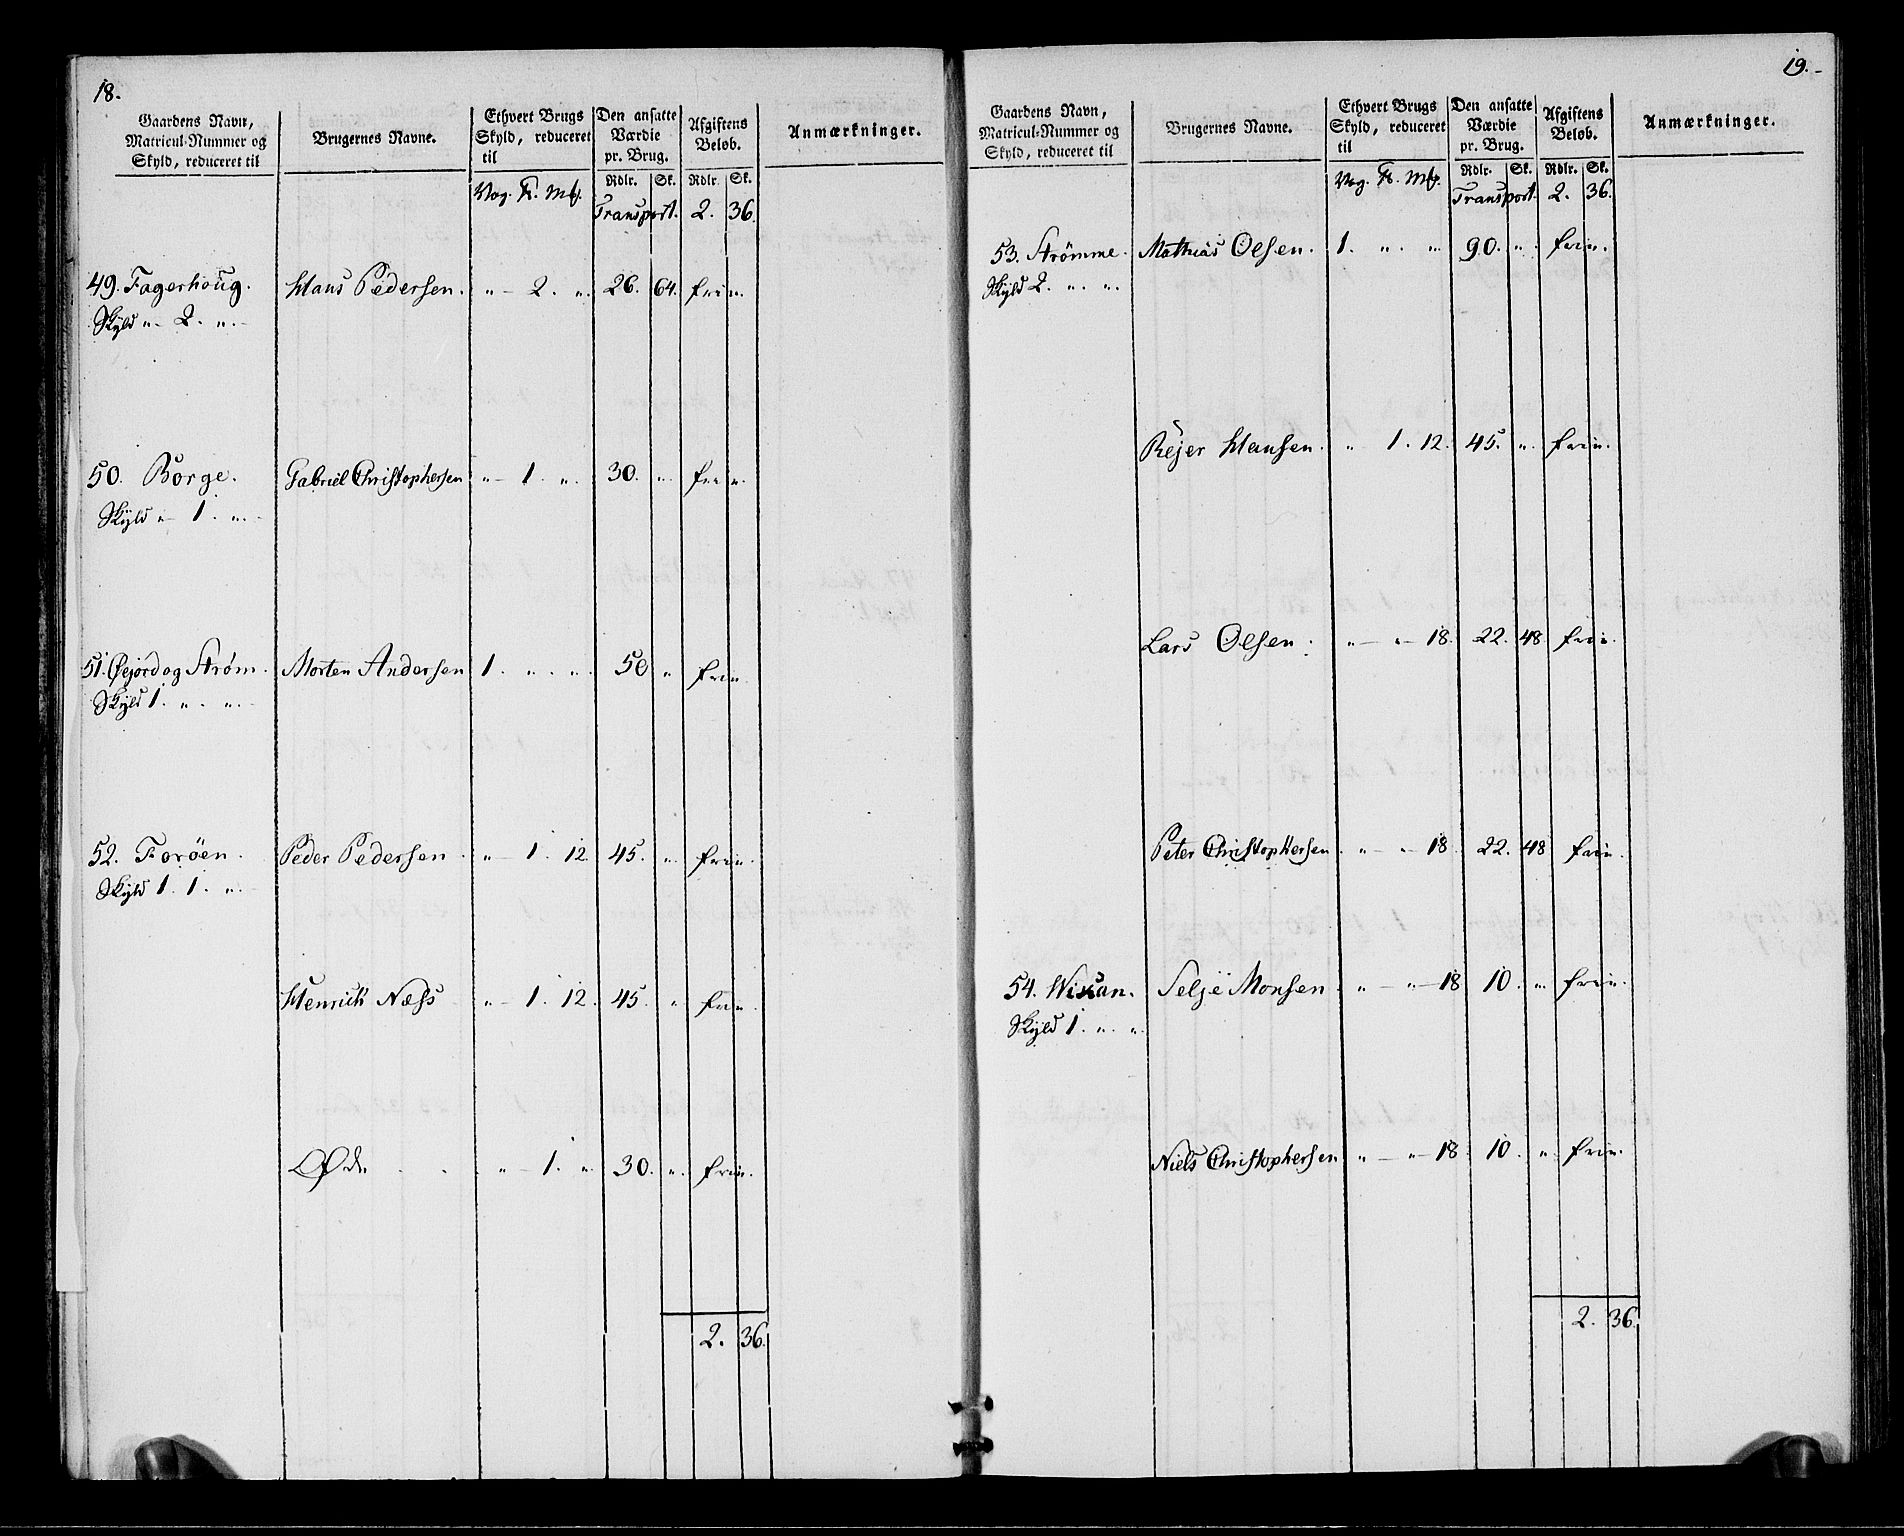 18.
Gaardens Navn, Matricul-Nummer og Skyld, reduceret til
Brugernes Navne.
Ethvert Brugs Skyld, reduceret til
Den ansatte Værdie pr. Brug.
Afgiftens Beløb.
Anmærkninger.
Vog. Mk.
Rdlr. Sk. Rdlr. Sk.
Transport. 2. 36.
49. Fagerhoug. Hans Pedersen. " - 2. ". 26. 64. frie.
Skyld " - 2. ". -
50. Borge. Gabriel Christophersen " - 1. ". 30. ". frie.
Skyld " - 1. ". -
51. Øejord og Strøm. Morten Andersen 1. ". ". 50 " frie
Skyld 1. ". ". -
52. Forøen. Peder Pedersen. " - 1. 12 45. ". frie.
Skyld 1. 1. ". -
Henrick Næss " - 1. 12. 45. " frie.
Øde. . . " - 1. ". 30. ". frie.
2. 36.
19. -
Gaardens Navn, Matricul-Nummer og Skyld, reduceret til
Brugernes Navne.
Ethvert Brugs Skyld, reduceret til
Den ansatte Værdie pr. Brug.
Afgiftens Beløb.
Anmærkninger.
Vog. Mk.
Rdlr. Sk. Rdlr. Sk.
Transport. 2. 36.
53. Strømme. Mathias Olsen. 1. ". " 90. ". frie.
Skyld 2. ". ".
Rejer Hansen. " 1. 12. 45. ". frie.
Lars Olsen. " - " - 18. 22. 48 frie.
Peter Christophersen. " - " 18. 22. 48 frie.
54. Wisan. Selje Monsen. " - " - 18 10. " frie.
Skyld 1. ". ".
Niels Christophersen " - " - 18 10. ". frie.
2. 36.